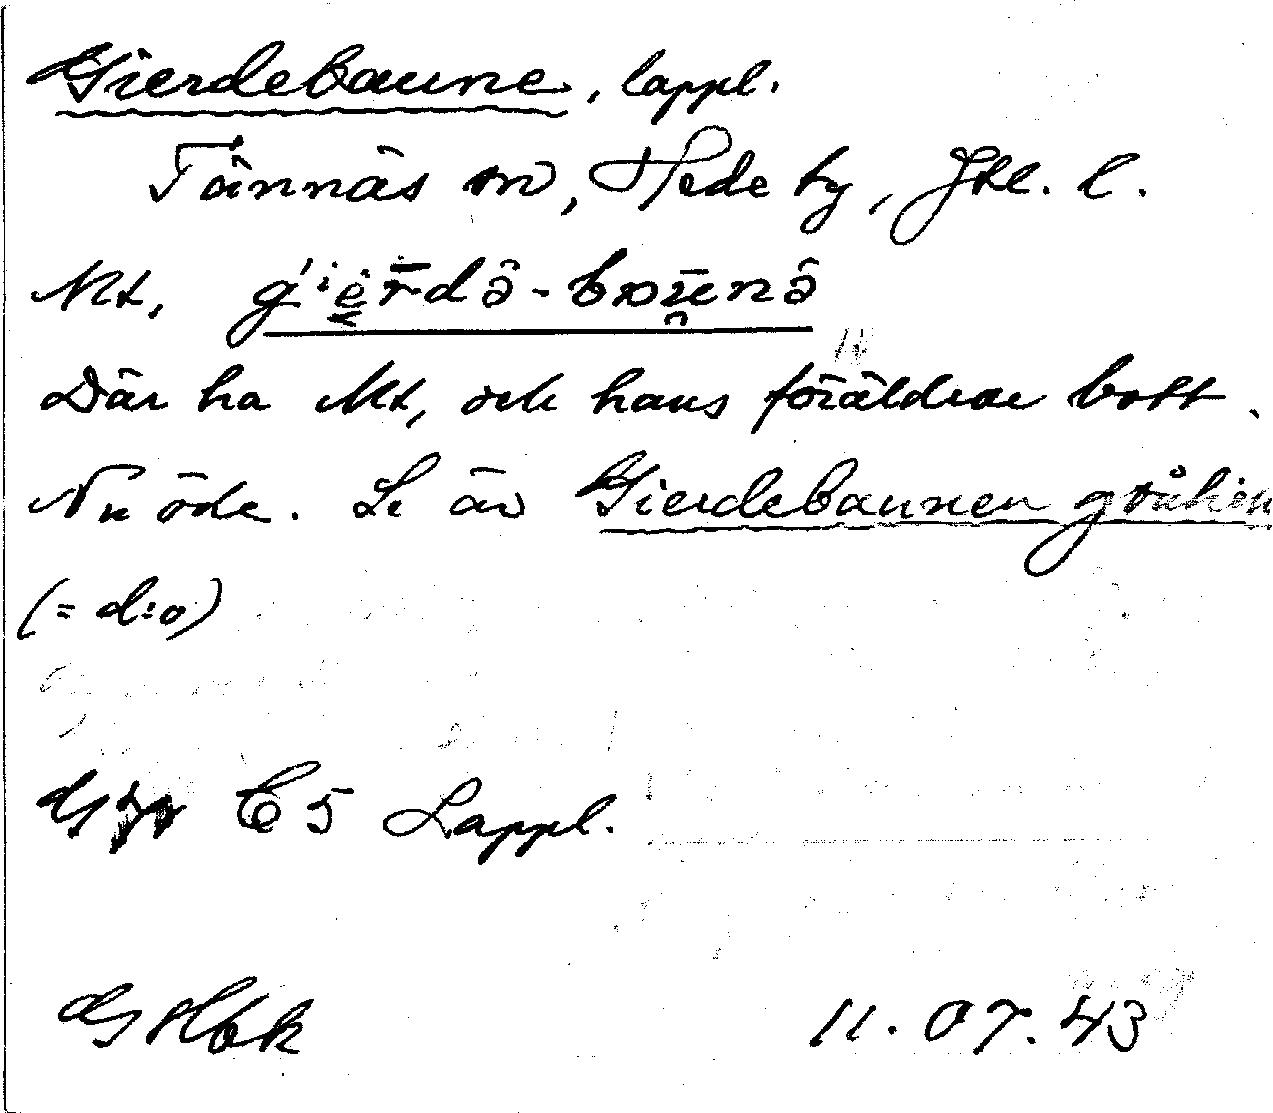 Gierdebaune, lappl.
Tännäs sn, Hede tg, Jtl. l.
Mt, g'iēr̄də̂-bɒu̯nə̂
Där ha Mt, och hans föräldrar bott.
Nu öde. Se äv Gierdebaunen gråhien
(= d:o)
C 5 Lappl.
GHbk 11.07.43